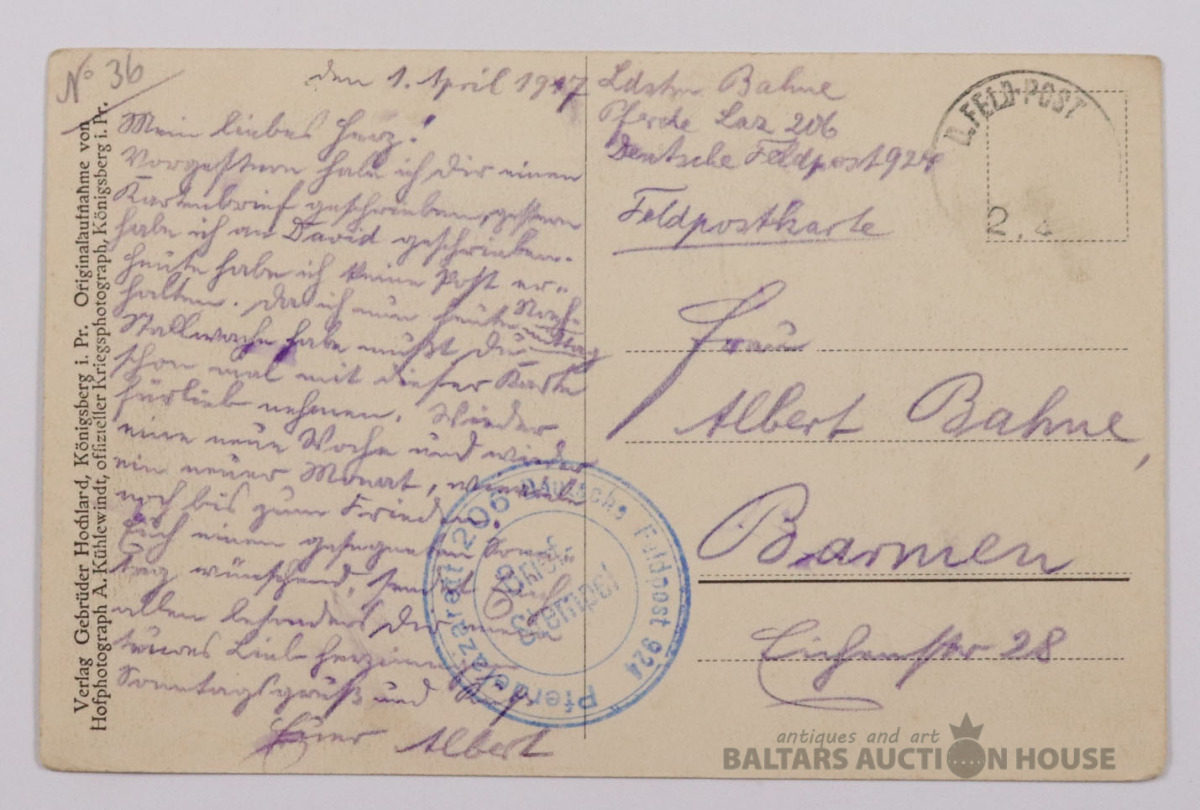 No 36
den 1. April 1917
Mein liebes Herz!
Vorgestern habe ich dir einen
Kartenbrief geschrieben, gestern
habe ich an David geschrieben.
heute habe ich keine Post er-
halten. Da ich nun heute Nach-
mittag
Stallwache habe mußt du
schon mal mit dieser Karte
fürlieb nehmen. Wieder
eine neue Woche und wieder
ein neuer Monat, wieviele
noch bis zum Frieden.
Euch einen gesegneten Sonn-
tag wünschend, sendet Euch
allen besonders dir mein
teures Lieb herzinnigen
Sonntagsgruß und Kuß
Euer Albert
Ldstm Bahne
Pferde Laz 206
Deutsche Feldpost 924
Feldpostkarte
Frau
Albert Bahne,
Barmen
Eichenstr 28
D. FELD-POST
2. 4
Pferdelazarett 206 Deutsche Feldpost 924
Brief
Stempel
Verlag Gebrüder Hochland, Königsberg i. Pr. Originalaufnahme von
Hofphotograph A. Kühlewindt, offizieller Kriegsphotograph, Königsberg i. Pr.
antiques and art
BALTARS AUCTION HOUSE